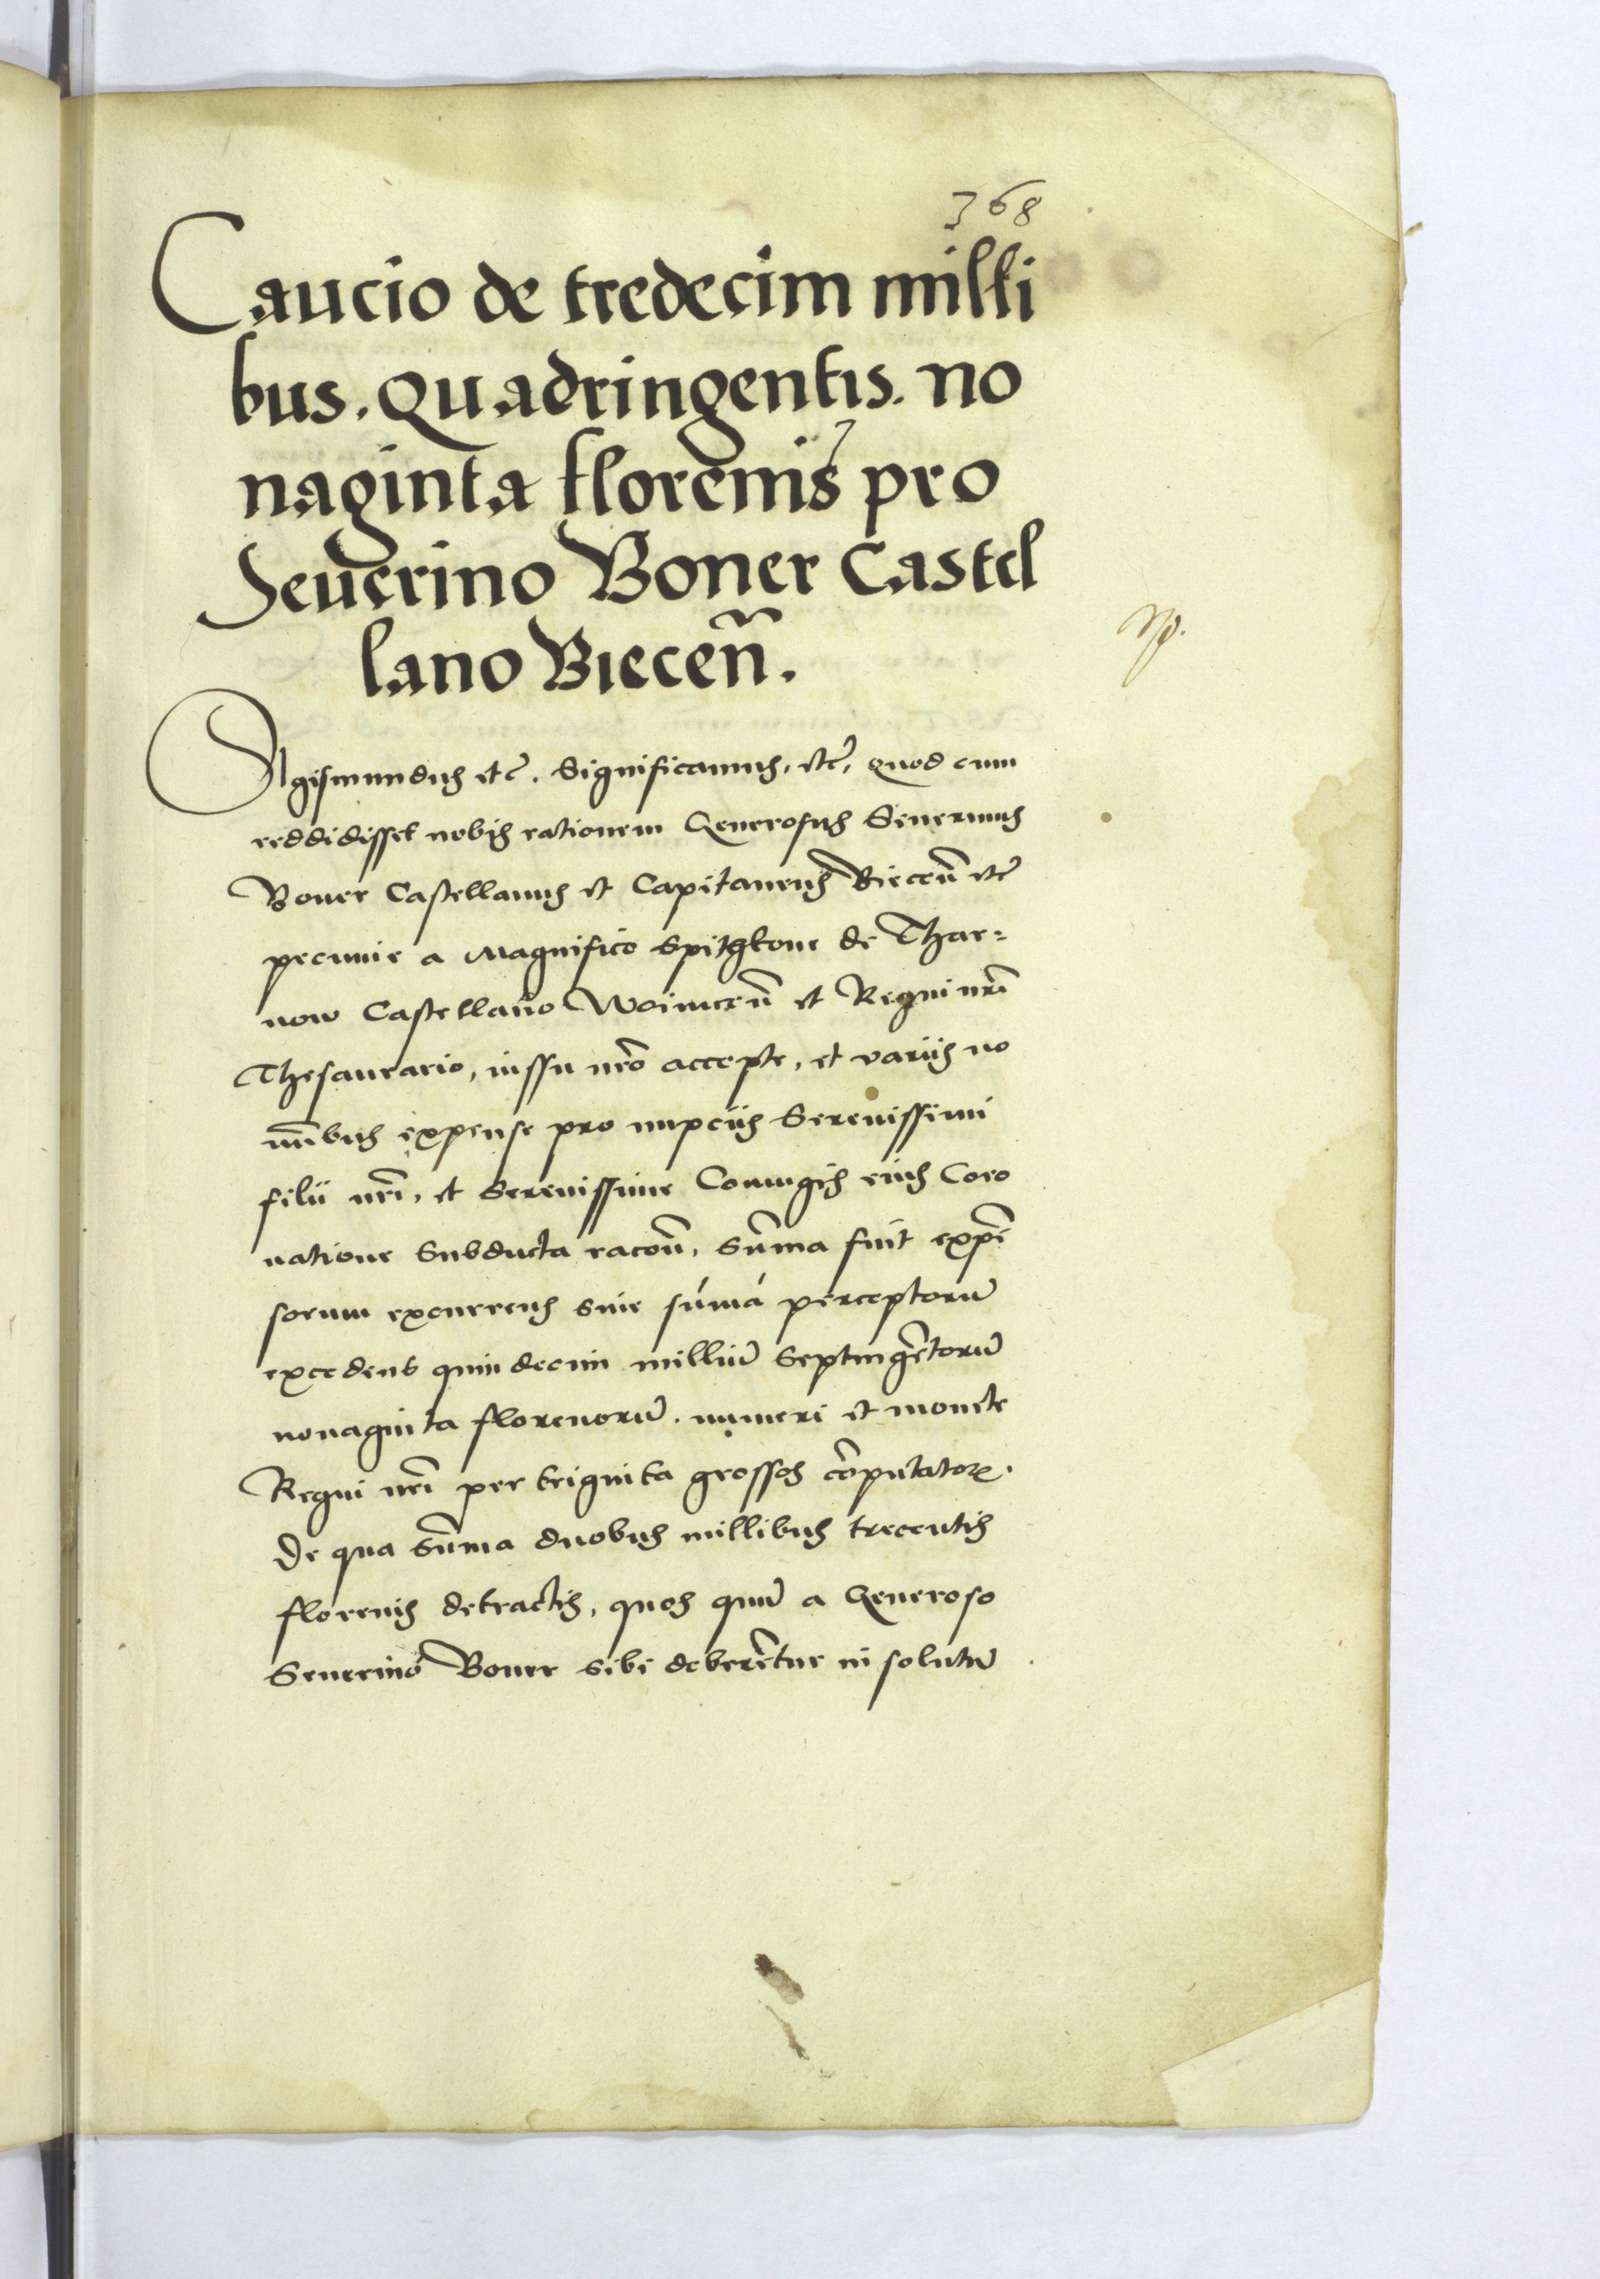 368
Caucio de tredecim milli
bus. Quadringentis. no
naginta florenis pro
Seuerino Boner Castel
lano Biecen̄.
Sigismundus etc̃. Significamus, etc̃, quod cum
reddidisset nobis rationem Generosus Seuerinus
Boner Castellanus et Capitaneus Biecen̄ etc̃
pecunie a Magnifico Spitkone de Thar=
now Castellano Woinicen̄ et Regni nr̃i
Thesaurario, iussu nr̃o accepte, et variis no
mı̃bus expense pro nupciis Serenissimi
filii nr̃i, et Serenissime Coniugis eius Coro
natione subducta racoñ, sum̃a fuit expẽ
sorum sue sum̃a perceptorũ
excedens quindecim milliũ septingẽtorũ
nonaginta florenorũ. numeri et monete
Regni nr̃i per triginta grossos cõputatorꝝ.
De qua sum̃a duobus millibus trecentis
florenis detractis, quos quũ a Generoso
Seuerino Boner sibi deberẽtur in solutũ